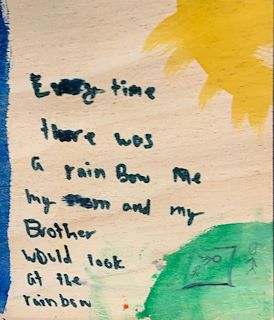 Every time
there was
a rain Bow Me
my mom and my
Brother
would look
at the
rainbow